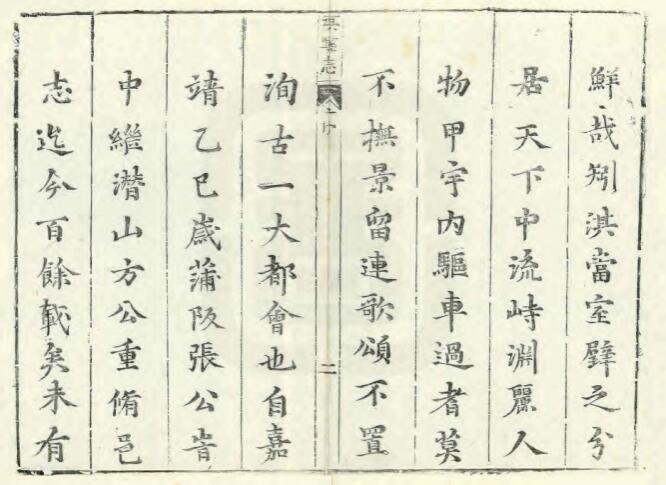 鮮哉矧淇當室壁之分
居天下中流峙淵麗人
物甲宇內驅車過者莫
不撫景留連歌頌不置
淇縣志
序
二
洵古一大都會也自嘉
靖乙巳歲蒲阪張公
中繼潛山方公重脩邑
志迄今百餘載矣未有